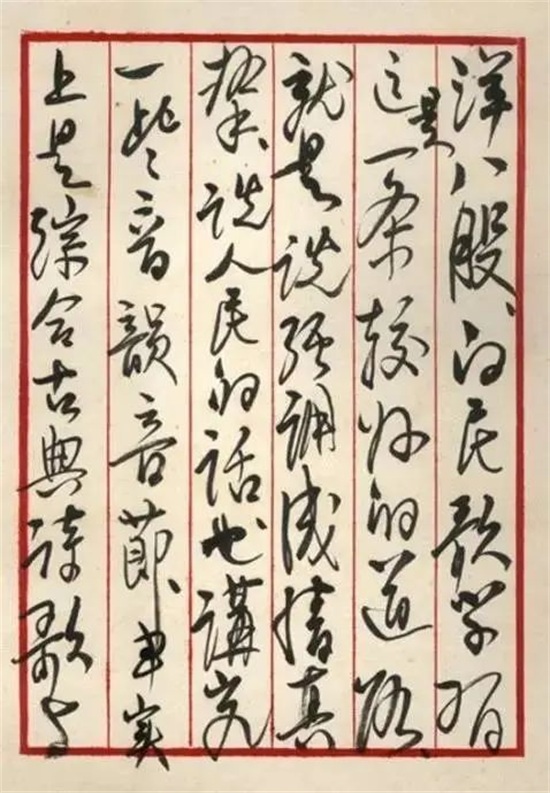 洋八股、向民歌学习
这是一条较好的道路、
就是说强调感情真
挚、说人民的话也讲究
一些音韵音节、事实
上是综合古典诗歌与